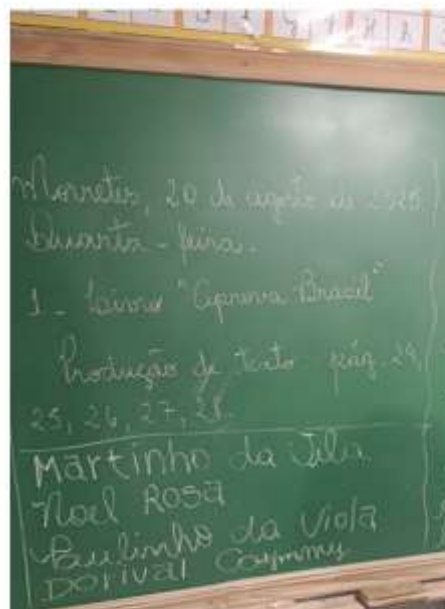 Morretes, 20 de agosto de 2025.
Quarta-feira.
1- Livro "Aprova Brasil"
Produção de texto pág. 24,
25, 26, 27, 28.
Martinho da Vila
Noel Rosa
Paulinho da Viola
Dorival Caymmy